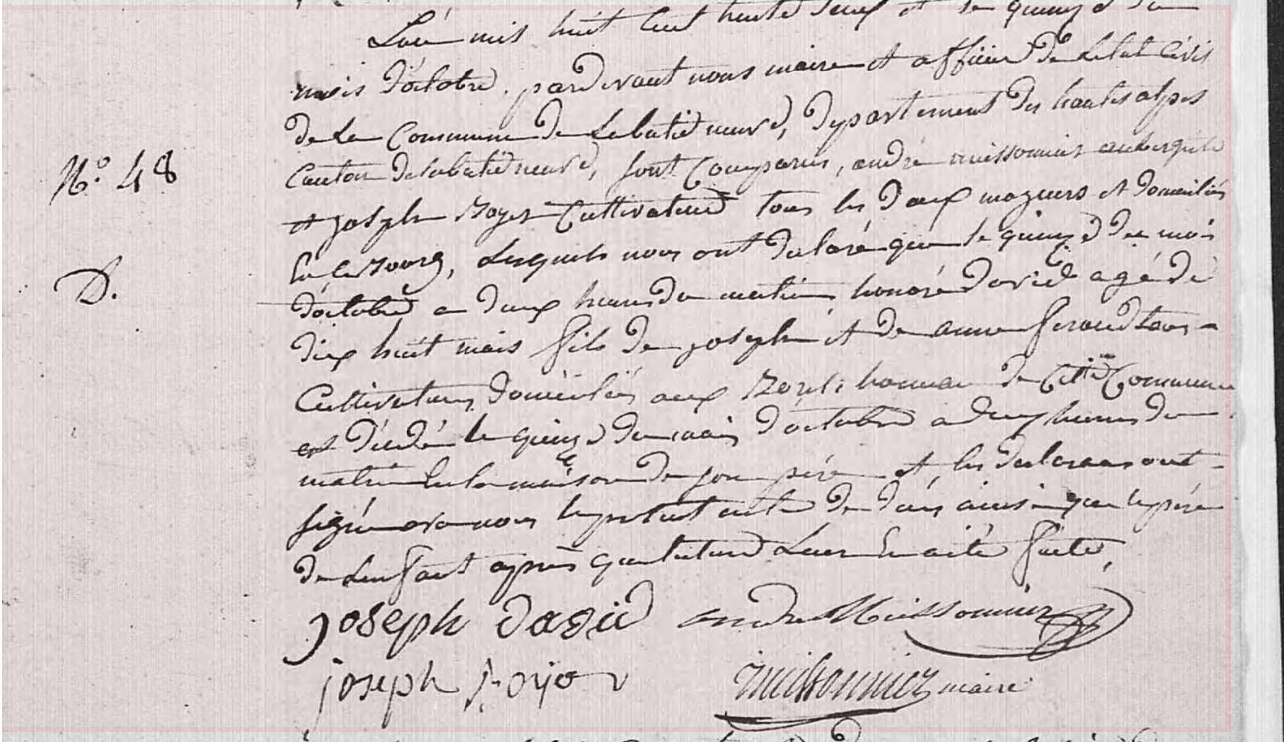 L'an mil huit cent trente deux et le quinze du
mois d'octobre, pardevant nous maire et officier de L'etat Civil
N.° 48
de La Commune de Labatie neuve, département des hautes alpes
Canton de Labatie neuve, sont Comparus, andré meissonnier aubergiste
et joseph Cultivateur tous les deux majeurs et domiciliés
D.
Lesquels nous ont declaré que le quinze du mois
d'octobre a deux heures du matin honoré david agé de
dix huit mois fils de joseph et de anne tous
Cultivateurs domiciliés aux hameau de Cette Commune
est décédé le quinze du mois d'octobre a deux heures du
matin En la maison de son père et les declarans ont
signé avec nous le présent acte de décès ainsi que le père
de L'enfant après que lecture Leur En a été faite,
joseph david andre Meissonnier
joseph meissonnier maire